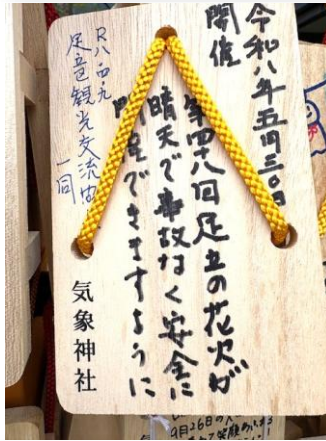 令和八年五月三〇日
開催
第四十八回足立の花火が
晴天で事故なく安全に
開催できますように
足立区観光交流
一同
気象神社
9月26日の